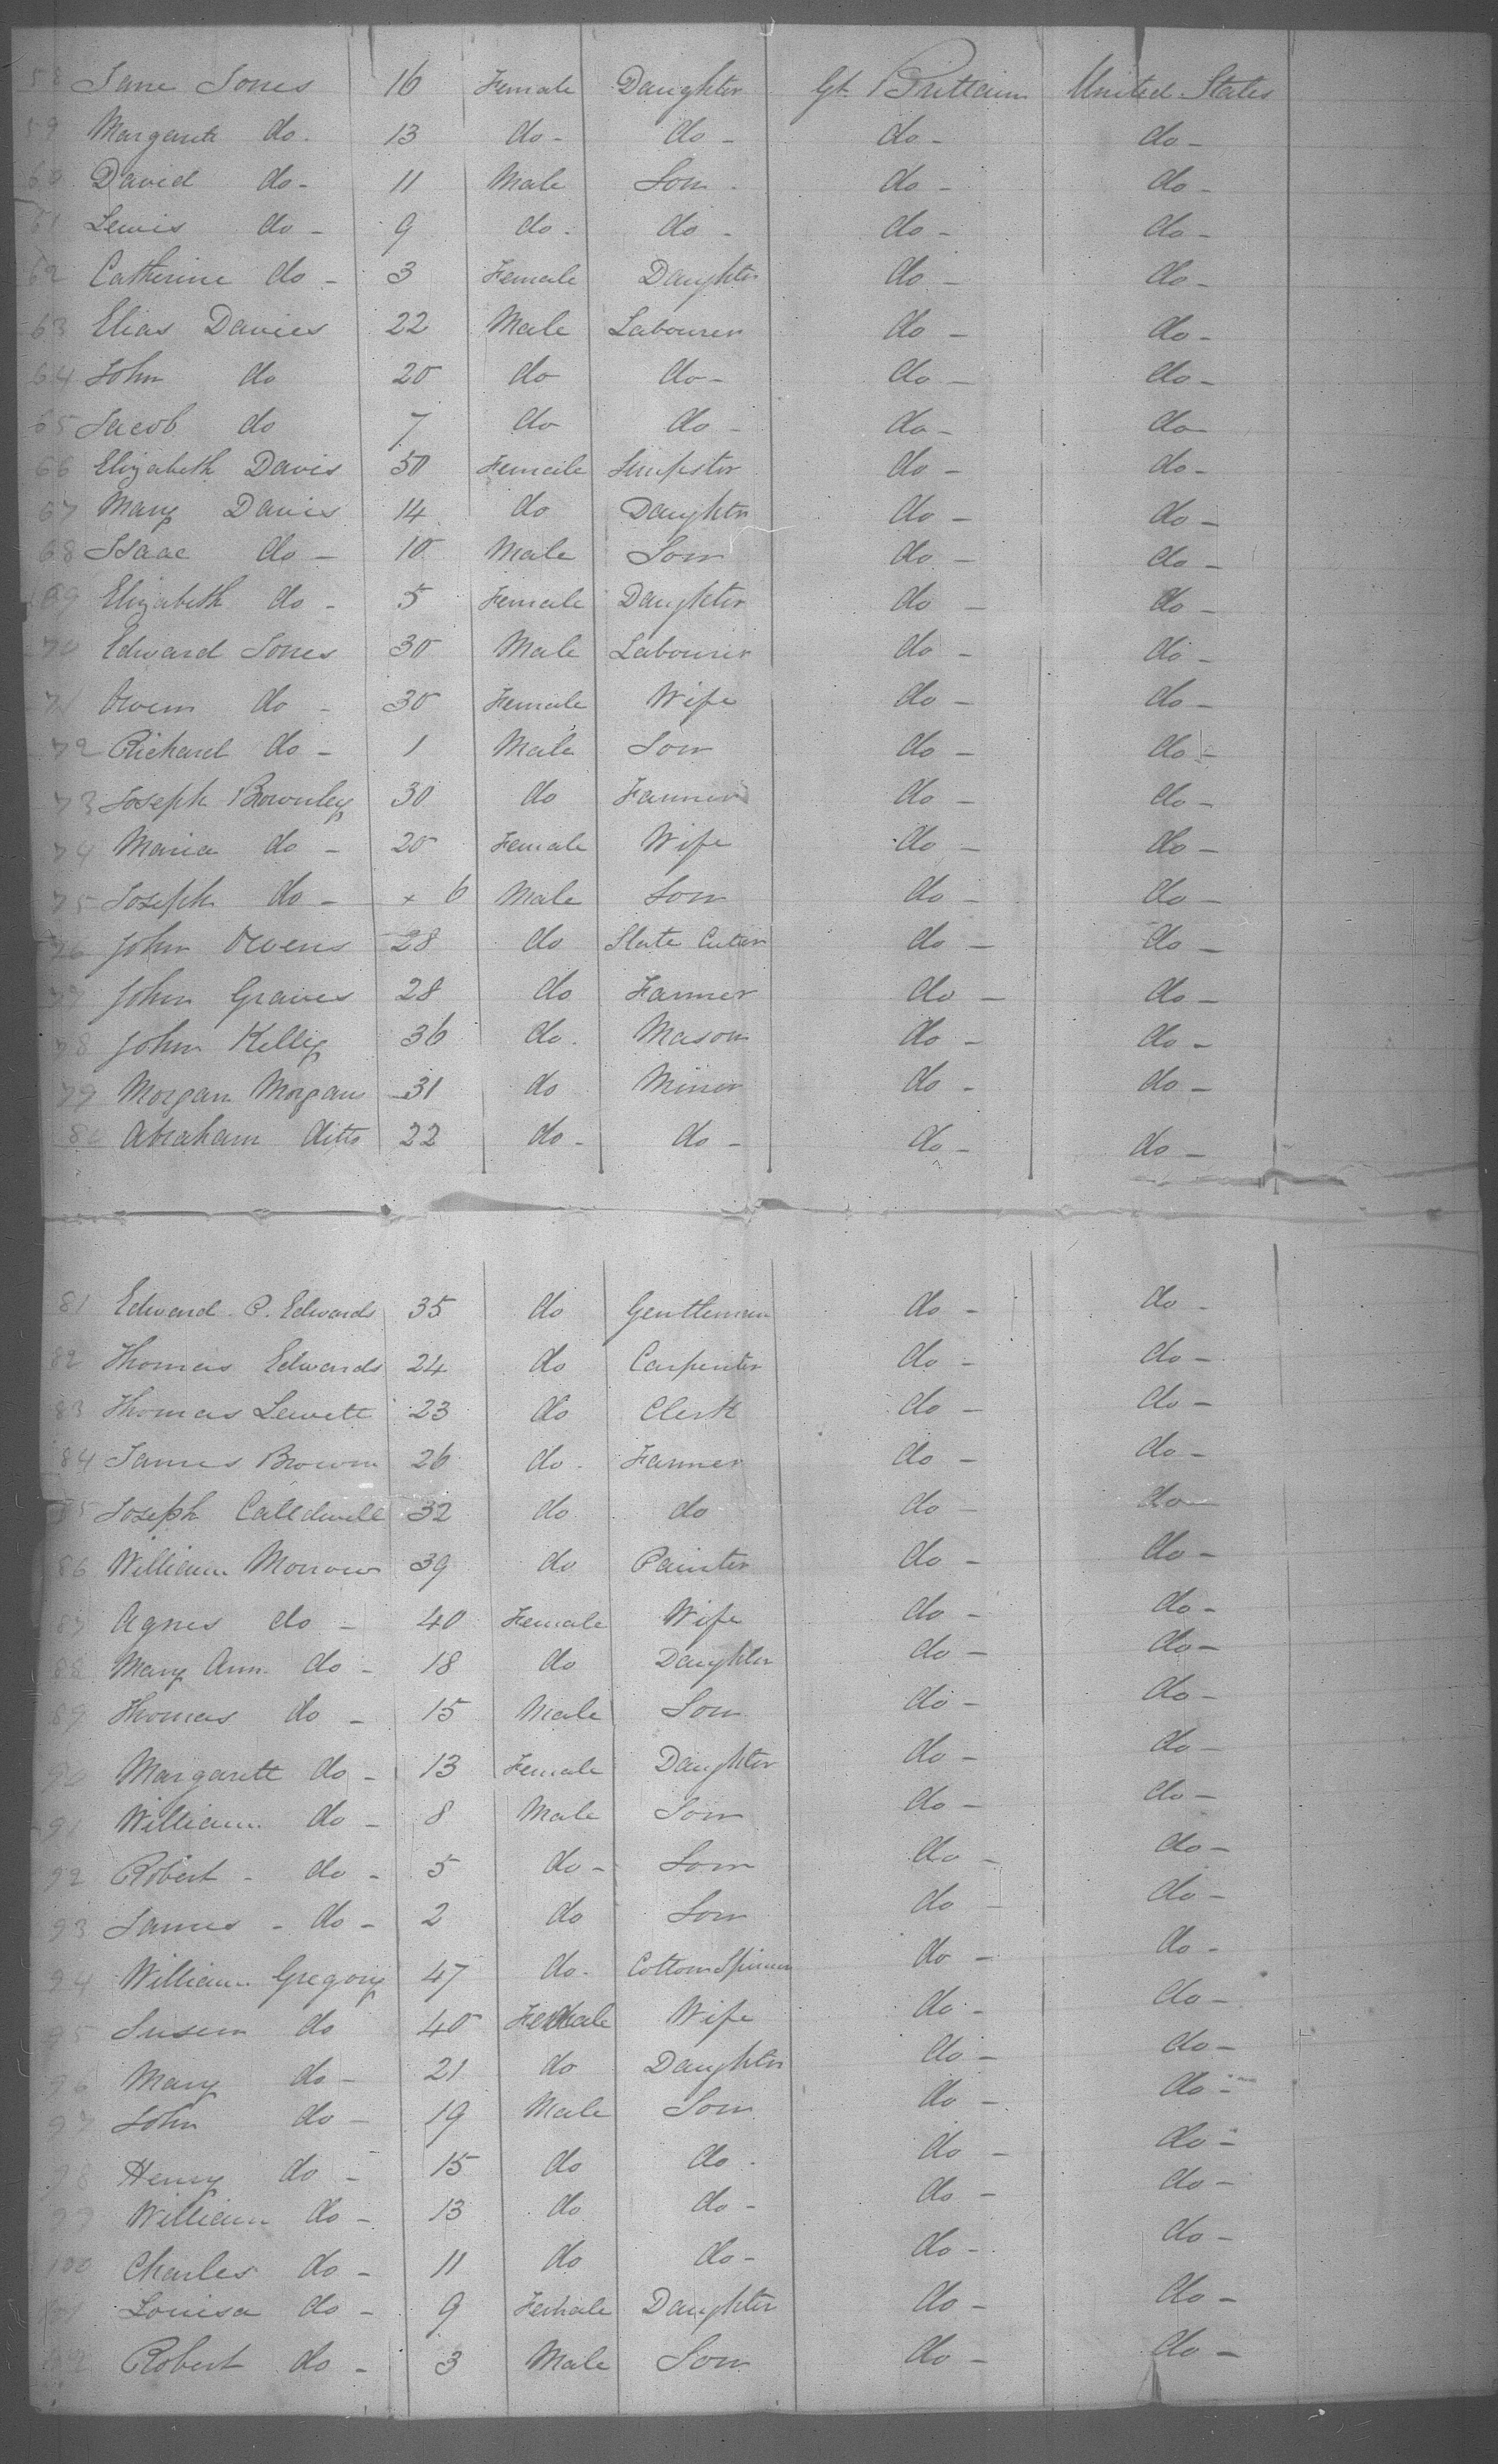 58 Jane Jones 16 Female Daughter Gt. Brittain United States
59 Margarett do. 13 do - do - do - do -
60 David do - 11 Male Son - do - do -
61 Lewis do - 9 do - do - do - do -
62 Catherine do - 3 Female Daughter do - do -
63 Elias Davies 22 Male Labourer do - do -
64 John do 20 do do - do - do -
65 Jacob do 7 do do - do - do -
66 Elizabeth Davis 50 Female do - do -
67 Mary Davies 14 do Daughter do - do -
68 Isaac do - 10 Male Son do - do -
69 Elizabeth do - 5 Female Daughter do - do -
70 Edward Jones 30 Male Labourer do - do -
71 Owen do - 30 Female Wife do - do -
72 Richard do - 1 Male Son do - do -
73 Joseph Brownley 30 do Farmer do - do -
74 Maria do - 20 Female Wife do - do -
75 Joseph do - + 6 Male Son do - do -
76 John Owens 28 do Slate Cuter do - do -
77 John Graves 28 do Farmer do - do -
78 John Kelly 36 do. Mason do - do -
79 Morgan Morgans 31 do Miner do - do -
80 Abraham ditto 22 do - do - do - do -
81 Edward P. Edwards 35 do Gentleman do - do -
82 Thomas Edwards 24 do Carpenter do - do -
83 Thomas Lewett 23 do Clerk do - do -
84 James Brown 26 do - Farmer do - do -
85 Joseph Calldwell 32 do do do - do -
86 William Morrow 39 do Painter do - do -
87 Agnes do - 40 Female Wife do - do -
88 Mary Ann do - 18 do Daughter do - do -
89 Thomas do - 15 Male Son do - do -
90 Margarett do - 13 Female Daughter do - do -
91 William do - 8 Male Son do - do -
92 Robert - do - 5 do - Son do - do -
93 James - do - 2 do Son do - do -
94 William Gregory 47 do - Cotton Spinner do - do -
95 Susen do 40 Female Wife do - do -
96 Mary do - 21 do Daughter do - do -
97 John do - 19 Male Son do - do -
98 Henry do - 15 do do - do - do -
99 William do - 13 do do - do - do -
100 Charles do - 11 do do - do - do -
Louisa do - 9 Female Daughter do - do -
Robert do - 3 Male Son do - do -